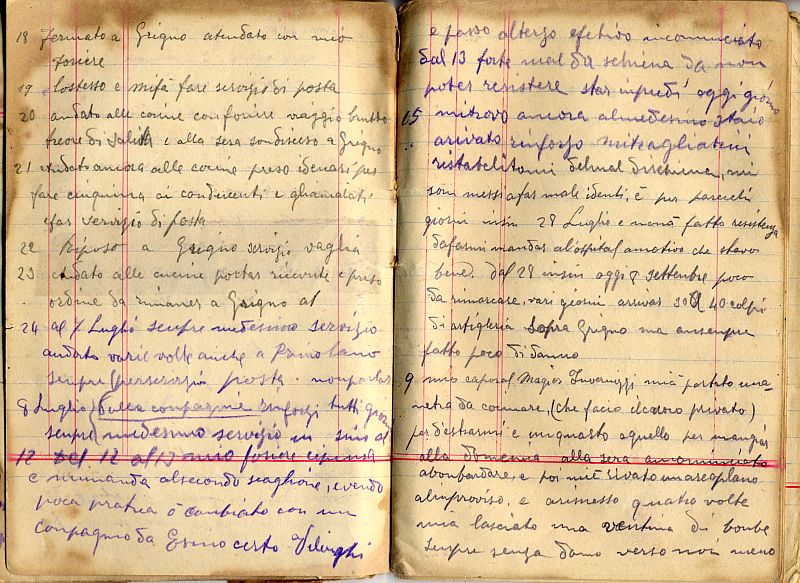 18 Fermato a Grigno atendato con mio
foriere
19 lostesso e mifà fare servisio di posta
20 andato alle cucine con foriere viaggio brutto
e alla sera son disceso a Grigno
21 andato ancora alle cucine preso idenari per
fare cinquina ai conducenti e ghamalati
efar servisio di posta
22 Riposo a Grigno servisio vaglia
23 andato alle cucine portar ricevute e preso
ordine da rimaner a Grigno al
24 al 7 Luglio sempre medesimo servisio
andato varie volte anche a Primolano
sempre per servisio posta. non parlar
8 Luglio dalla compagnie rinforzi tutti giorni
sempre medesimo servisio in sino al
12 Del 12 al 13 mio foriere
e rimanda al secondo scaglione, evendo
poca pratica ò canbiato con un
conpagnio da Esino certo Viloghi
e passo alterzo efetivo incominciato
dal 13 forte mal da schiena da non
poter resistere star inpiedi oggi giorno
15 mitrovo ancora almedesimo stato
arivato rinforso mitragliatrici
ristabelitomi delmal dischiena, mi
son messi a far mali identi, è per parecchi
giorni insin 28 Luglio e non à fatto resistenza
dafarmi mandar al ospital amotivo che stavo
bene. dal 28 insin oggi 8 settembre poco
da rimarcare, vari giorni arivar 30 o 40 colpi
di artigleria sopra Grigno ma ansempre
fatto poco di danno
9 mio caporal Magior Invernizzi mià portato una
netra da cocinare, (che facio il cuoco privato)
per desbarmi e inquanto aquello per mangiar
alla domenna alla sera an cominciato
abonbardare, e poi mi è rivato unareoplano
alinproviso, e arimesso quatro volte
mia lasciato una ventina di bonbe
sempre senza danno verso noi meno